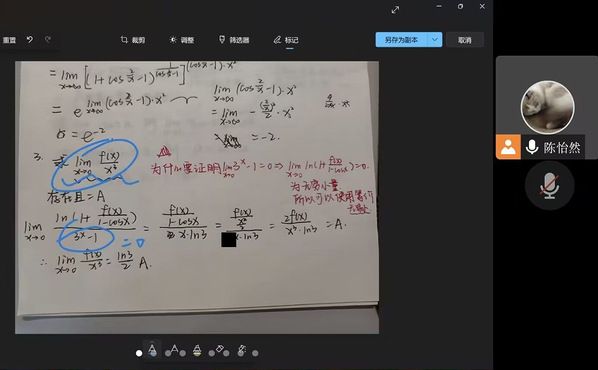 重置
裁剪
调整
筛选器
标记
另存为副本
取消
= lim x→∞ [(1+cos 2/x -1)^(1/(cos 2/x -1))]^(cos 2/x -1)·x²
= e^(lim x→∞ (cos 2/x -1)·x²)
lim x→∞ (cos 2/x -1)·x²
= lim x→∞ - (2/x)²/2 · x²
= -2.
= e⁻²
3. 求 lim x→0 f(x)/x³
存在且=A
为什么要证明 lim x→0 3ˣ-1=0 ⇒ lim x→0 ln(1+ f(x)/(1-cosx))=0.
为无穷小量
所以可以使用等价
lim x→0 ln(1+ f(x)/(1-cosx)) / (3ˣ-1) = (f(x)/(1-cosx)) / (x·ln3) = = 2f(x)/(x³·ln3) = A.
=0
∴ lim x→0 f(x)/x³ = ln3/2 A.
陈怡然